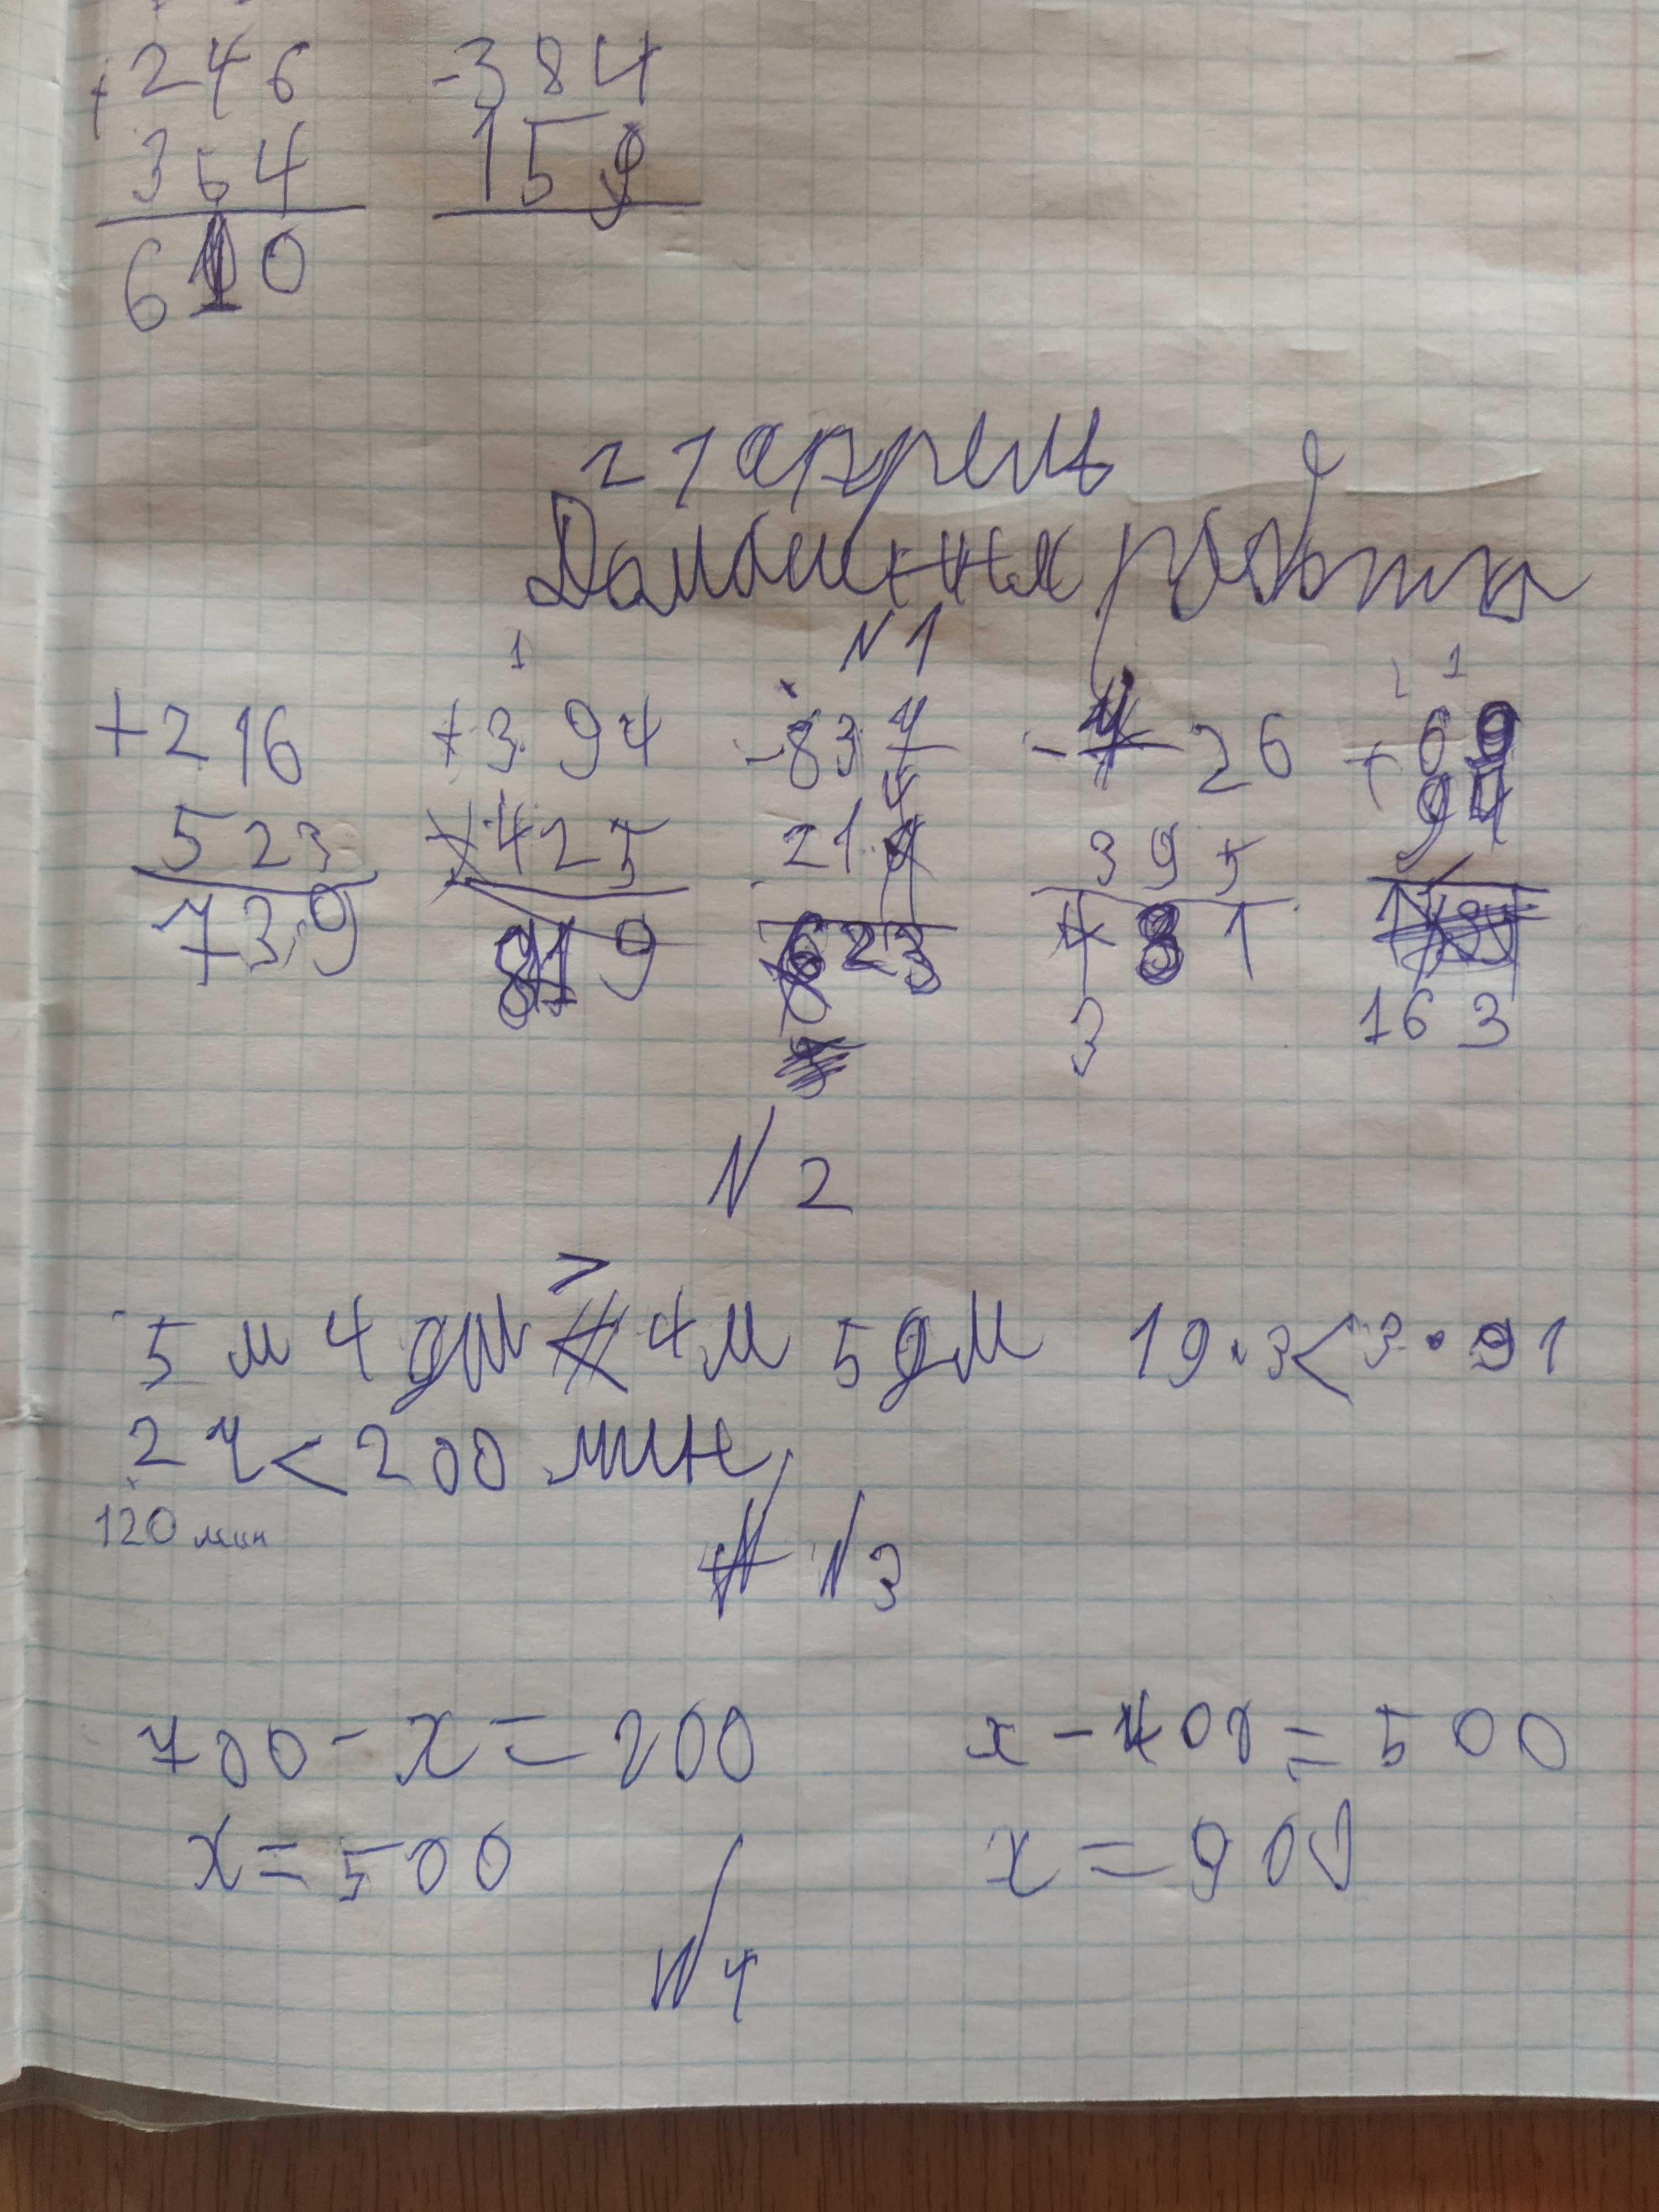 +246 -384
364 159
610
21 апрель
Домашняя работа
N1
1 1
+216 +394 -837 - 26 +69
523 425 214 395 94
739 819 623 31
163
N2
>
5 м 4 дм 4м 5 дм 19·3<3·91
2 ч<200 мин
120 мин
N3
700-x=200 x-400=500
x=500 x=900
N4